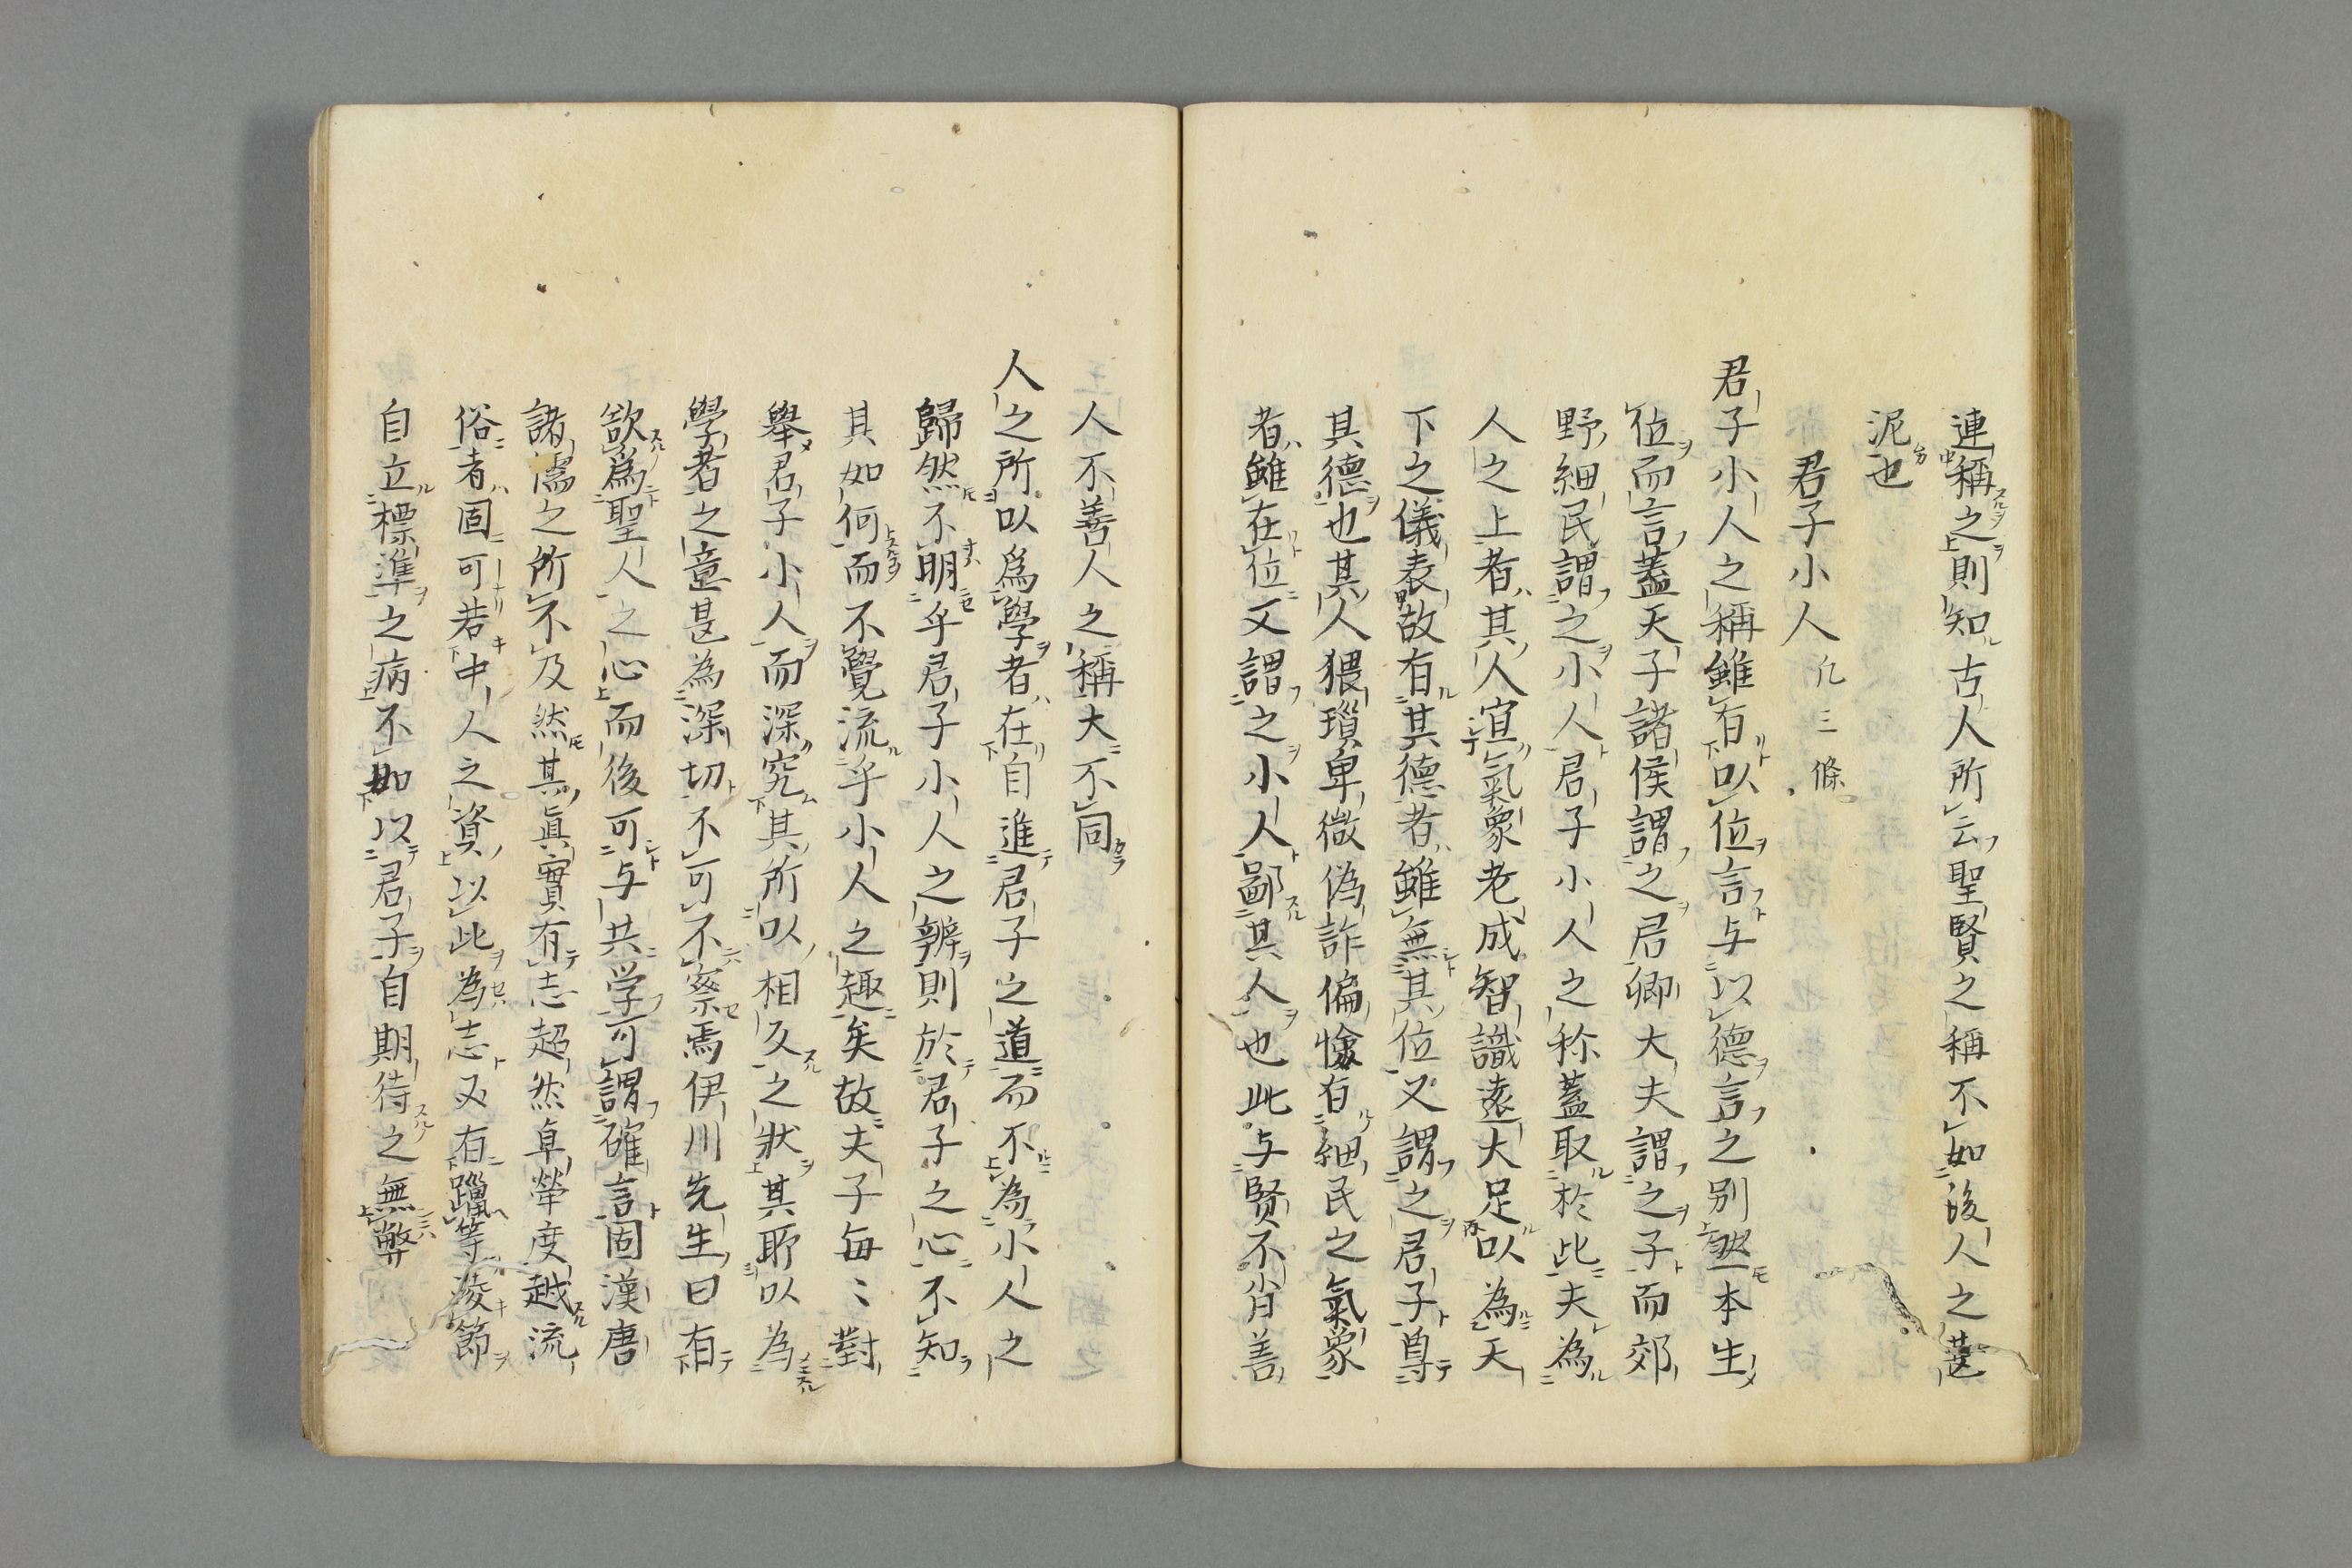 連稱之則知古人所云聖賢之稱不如後人之甚
泥也
君子小人 凡三條
君子小人之稱雖有以位言与以德言之別然本生
位而言蓋天子諸侯謂之君卿大夫謂之子而郊
野細民謂之小人君子小人之称蓋取於此夫為
人之上者其人宜氣象老成智識遠大足以為天
下之儀表故有其德者雖無其位又謂之君子尊
其德也其人猥瑣卑微偽詐偏懀有細民之氣象
者雖在位又謂之小人鄙其人也此与賢不肖善
人不善人之稱大不同
人之所以為學者在自進君子之道而不為小人之
歸然不明乎君子小人之辨則於君子之心不知
其如何而不覺流乎小人之趣矣故夫子每〻對
舉君子小人而深究其所以相反之狀其所以為
學者之意甚為深切不可不察焉伊川先生曰有
欲為聖人之心而後可与共学可謂確言固漢唐
諸儒之所不及然其眞實有志超然卓犖度越流
俗者固可若中人之資以此為志又有躐等凌節
自立標準之病不如以君子自期待之無弊